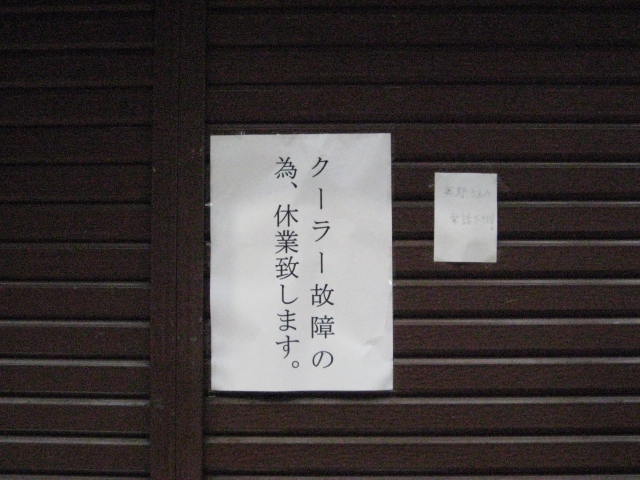 クーラー故障の
為、休業致します。